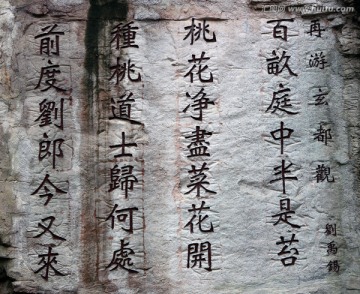 再游玄都觀
劉禹錫
百畝庭中半是苔
桃花净盡菜花開
種桃道士歸何處
前度劉郎今又來